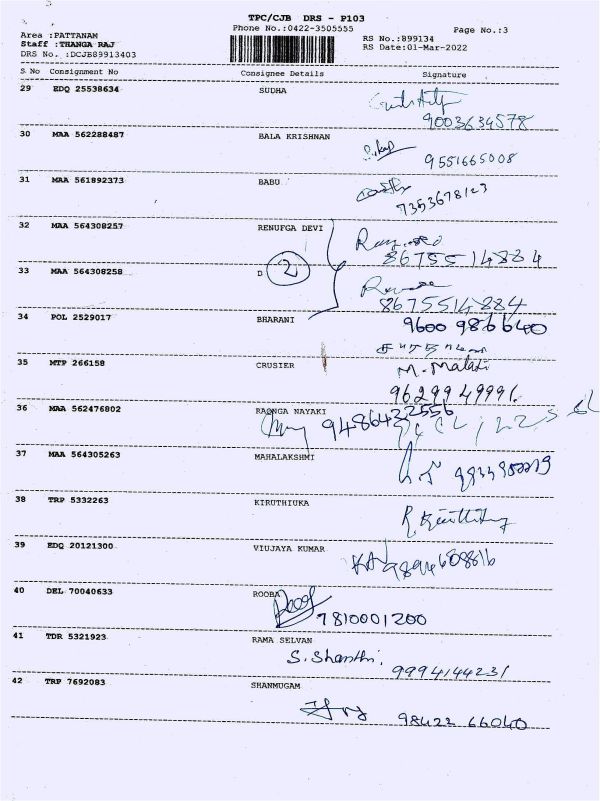 TPC/CJB DRS - P103
Phone No.:0422-3505555
Page No.:3
Area :PATTANAM
RS No.:899134
Staff :THANGA RAJ
RS Date:01-Mar-2022
DRS No. :DCJB89913403
S No Consignment No Consignee Details Signature
29 EDQ 25538634 SUDHA
9003634578
30 MAA 562288487 BALA KRISHNAN
9551665008
31 MAA 561892373 BABU
7353678123
32 MAA 564308257 RENUFGA DEVI
8675514884
33 MAA 564308258 D 2
8675514884
34 POL 2529017 BHARANI 9600 986640
35 MTP 266158 CRUSIER M. Malati
9629949991.
36 MAA 562476802 RAONGA NAYAKI
9486422556
37 MAA 564305263 MAHALAKSHMI
38 TRP 5332263 KIRUTHIUKA
39 EDQ 20121300 VIUJAYA KUMAR
9894608816
40 DEL 70040633 ROOBA
7810001200
41 TDR 5321923 RAMA SELVAN
S. Shanthi.
9994144231
42 TRP 7692083 SHANMUGAM
98422 66040